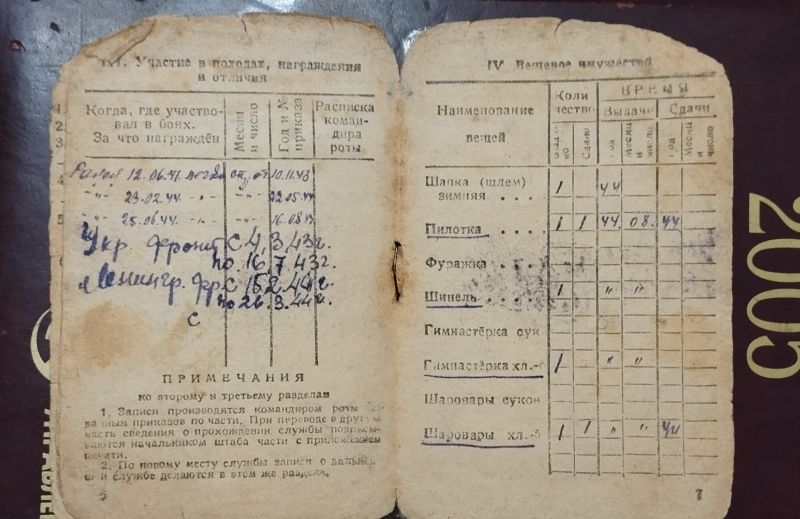 III. Участие в походах, награждения
и отличия
Когда, где участво-
вал в боях.
За что награждён
Месяц
и число
Год и №
приказа
Расписка
коман-
дира
роты
Ранен 12.06.41 10.11.43
-"- 23.02.44 -"- -"- 22.05.44
-"- 25.06.44 -"- -"- 16.08
Укр. фронт с 4.3.43 г.
по 16.7.43 г.
Ленингр. фр. с 15.2.44 г.
по 26.3.44 г.
с
ПРИМЕЧАНИЯ
ко второму и третьему разделам
1. Записи производятся командиром роты
приказов по части. При переводе в
часть сведения о прохождении службы
начальником штаба части с приложением
печати.
2. По новому месту службы записи о
службе делаются в этом же разделе.
6
IV. Вещевое имущество
Наименование
вещей
Коли
чество
ВРЕМЯ
Выдачи
Сдачи
Сдано
Год
Месяц
и число
Год
Месяц
и число
Шапка (шлем)
зимняя . . . 1 44
Пилотка . . . 1 1 44 08. 44
Фуражка . . .
Шинель . . . . 1 " "
Гимнастёрка сук
Гимнастёрка хл.-б 1 " "
Шаровары сукон
Шаровары хл.-б 1 1 " " 44
7
2005